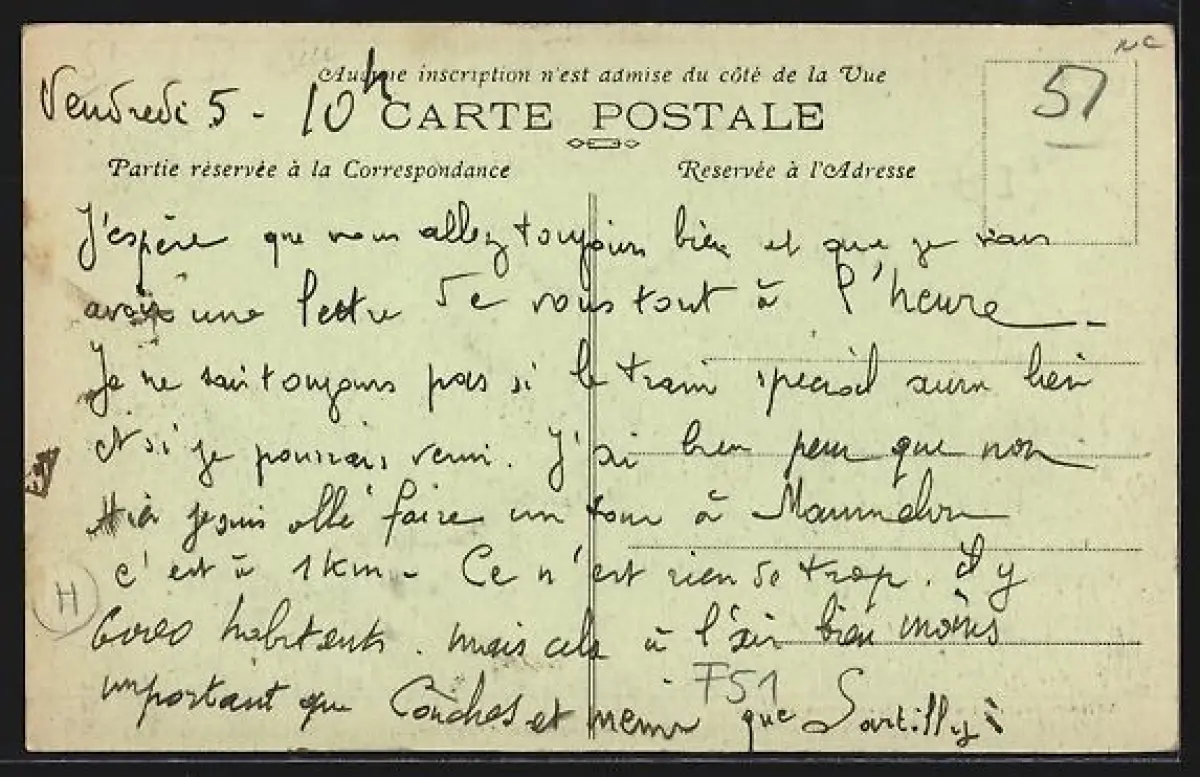 NC
Aucune inscription n'est admise du côté de la Vue
Vendredi 5 - 10h
CARTE POSTALE
51
Partie réservée à la Correspondance
Reservée à l'Adresse
J'espère que vous allez toujours bien et que je vais
avoir une lettre de vous tout à l'heure
Je ne sais toujours pas si le train spécial aura lieu
et si je pourrais venir. J'ai bien peur que non
Hier je suis allé faire un tour à
c'est à 1 km - Ce n'est rien de trop. Il y
6000 habitants. mais cela à l'air bien moins
H
important que Couches et même que Sartilly
F51